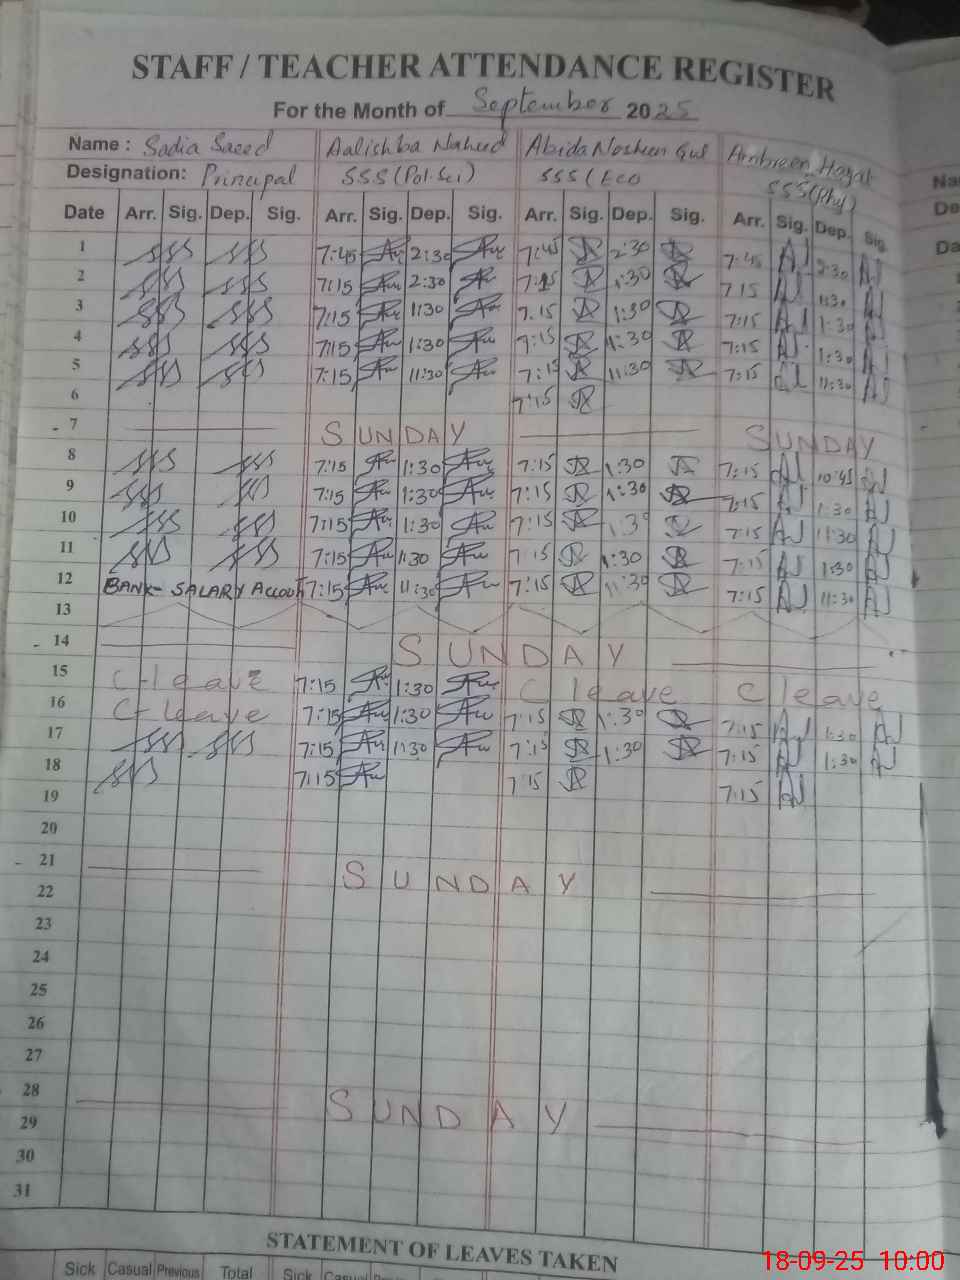 STAFF / TEACHER ATTENDANCE REGISTER
For the Month of September 2025
Name : Sadia Saeed Aalishba Naheed Abida Nosheen Gul Ambreen
Designation: Principal SSS (Pol.Sci) SSS (Eco SSS (Phy)
Date Arr. Sig. Dep. Sig. Arr. Sig. Dep. Sig. Arr. Sig. Dep. Sig. Arr. Sig. Dep. Sig
1 7:45 2:30 7:45 2:30 7:45 2:30
2 7:15 2:30 1:30 7:15 1:30
3 7:15 1:30 7:15 1:30 7:15 1:30
4 7:15 1:30 7:15 1:30 7:15 1:30
5 7:15 11:30 7:15 11:30 7:15 11:30
6 7:15
7 SUNDAY SUNDAY
8 7:15 1:30 7:15 1:30 7:15 10:45
9 7:15 1:30 7:15 1:30 7:15 1:30
10 7:15 1:30 7:15 1:30 7:15 11:30
11 7:15 1:30 7:15 1:30 7:15 1:30
12 BANK - SALARY ACCOUT 7:15 11:30 7:15 11:30 7:15 11:30
13
14 SUNDAY
15 C-leave 7:15 1:30 C leave C leave
16 C-leave 7:15 1:30 7:15 1:30 7:15 1:30
17 7:15 1:30 7:15 1:30 7:15 1:30
18 7:15 7:15 7:15
19
20
21 SUNDAY
22
23
24
25
26
27
28 SUNDAY
29
30
31
STATEMENT OF LEAVES TAKEN
Sick Casual Previous Total Sick Casual
18-09-25 10:00